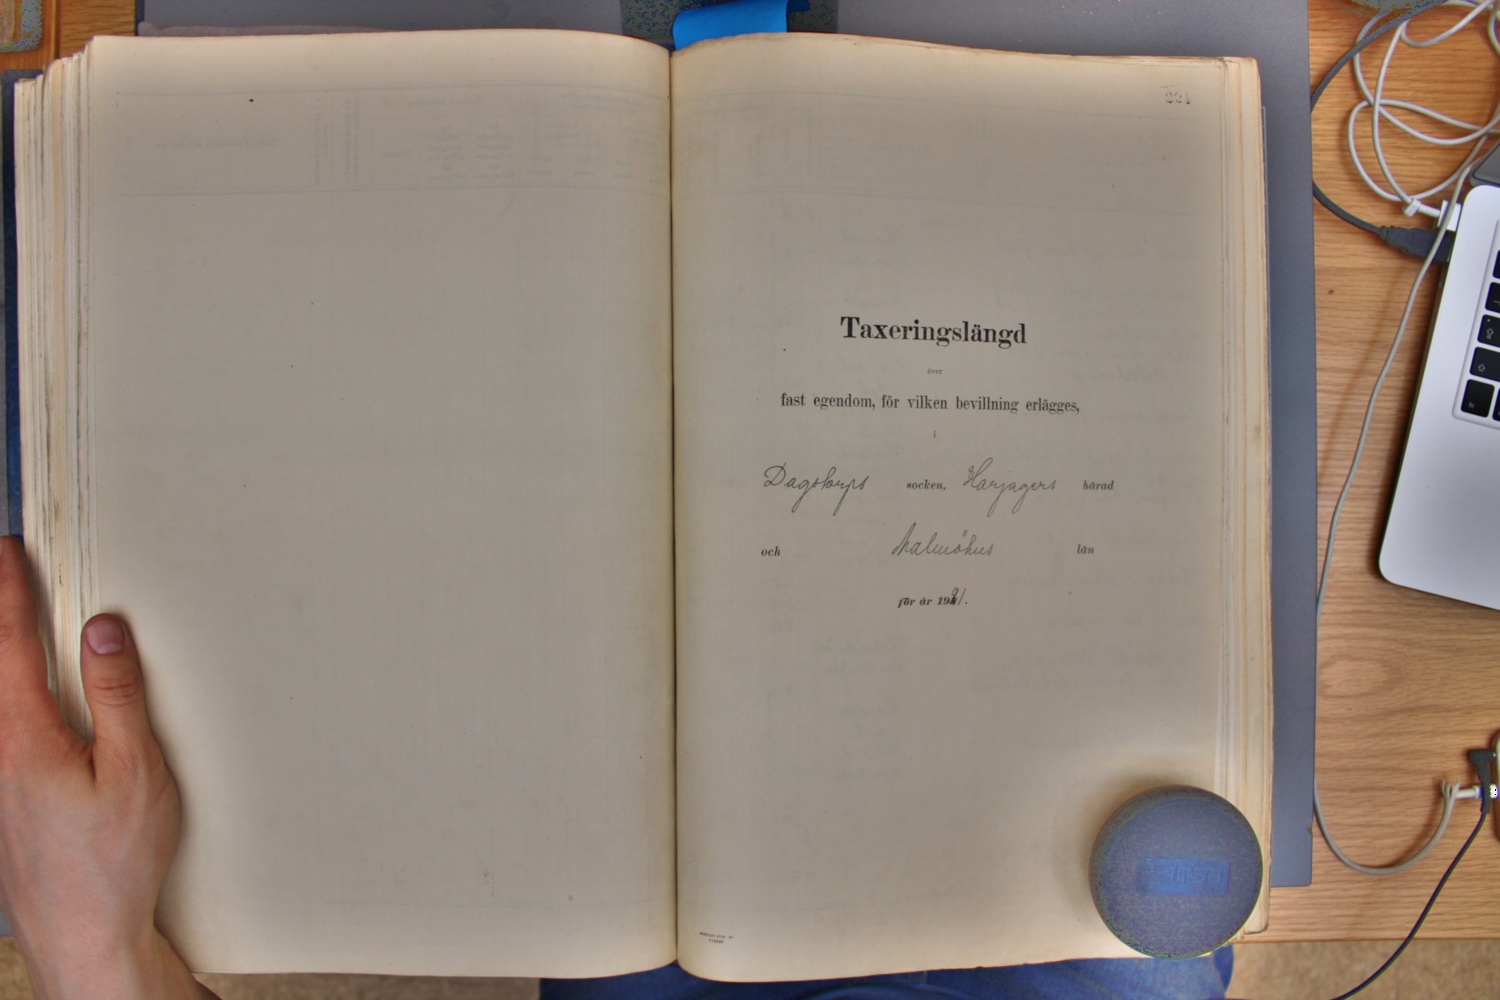 221
Taxeringslängd
över
fast egendom, för vilken bevillning erlägges,
i
Dagstorps socken, Harjagers härad
och Malmöhus län
för år 1921.